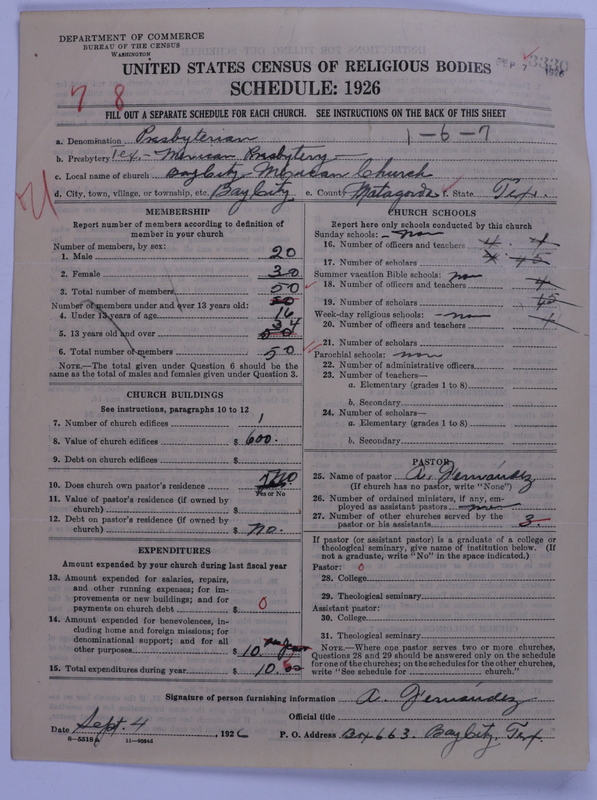 DEPARTMENT OF COMMERCE
BUREAU OF THE CENSUS
WASHINGTON
UNITED STATES CENSUS OF RELIGIOUS BODIES
SCHEDULE: 1926
SEP 7 1926
7 8
FILL OUT A SEPARATE SCHEDULE FOR EACH CHURCH. SEE INSTRUCTIONS ON THE BACK OF THIS SHEET
1-6-7
a. Denomination Presbyterian
b. Presbytery Tex-Mexican Presbytery
c. Local name of church Bay City Mexican Church
d. City, town, village, or township, etc. Bay City e. County Matagorda f. State Tex.
MEMBERSHIP
Report number of members according to definition of member in your church
Number of members, by sex:
1. Male 20
2. Female 30
3. Total number of members 50
Number of members under and over 13 years old:
4. Under 13 years of age 16
5. 13 years old and over 34
6. Total number of members 50
NOTE.—The total given under Question 6 should be the same as the total of males and females given under Question 3.
CHURCH BUILDINGS
See instructions, paragraphs 10 to 12
7. Number of church edifices 1
8. Value of church edifices $ 600.
9. Debt on church edifices $
10. Does church own pastor's residence No
Yes or No
11. Value of pastor's residence (if owned by church) $
12. Debt on pastor's residence (if owned by church) $ No.
EXPENDITURES
Amount expended by your church during last fiscal year
13. Amount expended for salaries, repairs, and other running expenses; for improvements or new buildings; and for payments on church debt $ 0
14. Amount expended for benevolences, including home and foreign missions; for denominational support; and for all other purposes $ 10.
15. Total expenditures during year $ 10.00
CHURCH SCHOOLS
Report here only schools conducted by this church
Sunday schools:
16. Number of officers and teachers
17. Number of scholars
Summer vacation Bible schools:
18. Number of officers and teachers
19. Number of scholars
Week-day religious schools:
20. Number of officers and teachers
21. Number of scholars
Parochial schools:
22. Number of administrative officers
23. Number of teachers—
a. Elementary (grades 1 to 8)
b. Secondary
24. Number of scholars—
a. Elementary (grades 1 to 8)
b. Secondary
PASTOR
25. Name of pastor A. Fernández
(If church has no pastor, write "None")
26. Number of ordained ministers, if any, employed as assistant pastors
27. Number of other churches served by the pastor or his assistants 3
If pastor (or assistant pastor) is a graduate of college or theological seminary, give name of institution below. (If not a graduate, write "No" in the space indicated.)
Pastor: 0
28. College
29. Theological seminary
Assistant pastor:
30. College
31. Theological seminary
NOTE.—Where one pastor serves two or more churches, Questions 28 and 29 should be answered only on the schedule for one of the churches; on the schedules for the other churches, write "See schedule for church."
Signature of person furnishing information A. Fernández
Official title
Date Sept. 4, 1926 P. O. Address Box 663. Bay City, Tex.